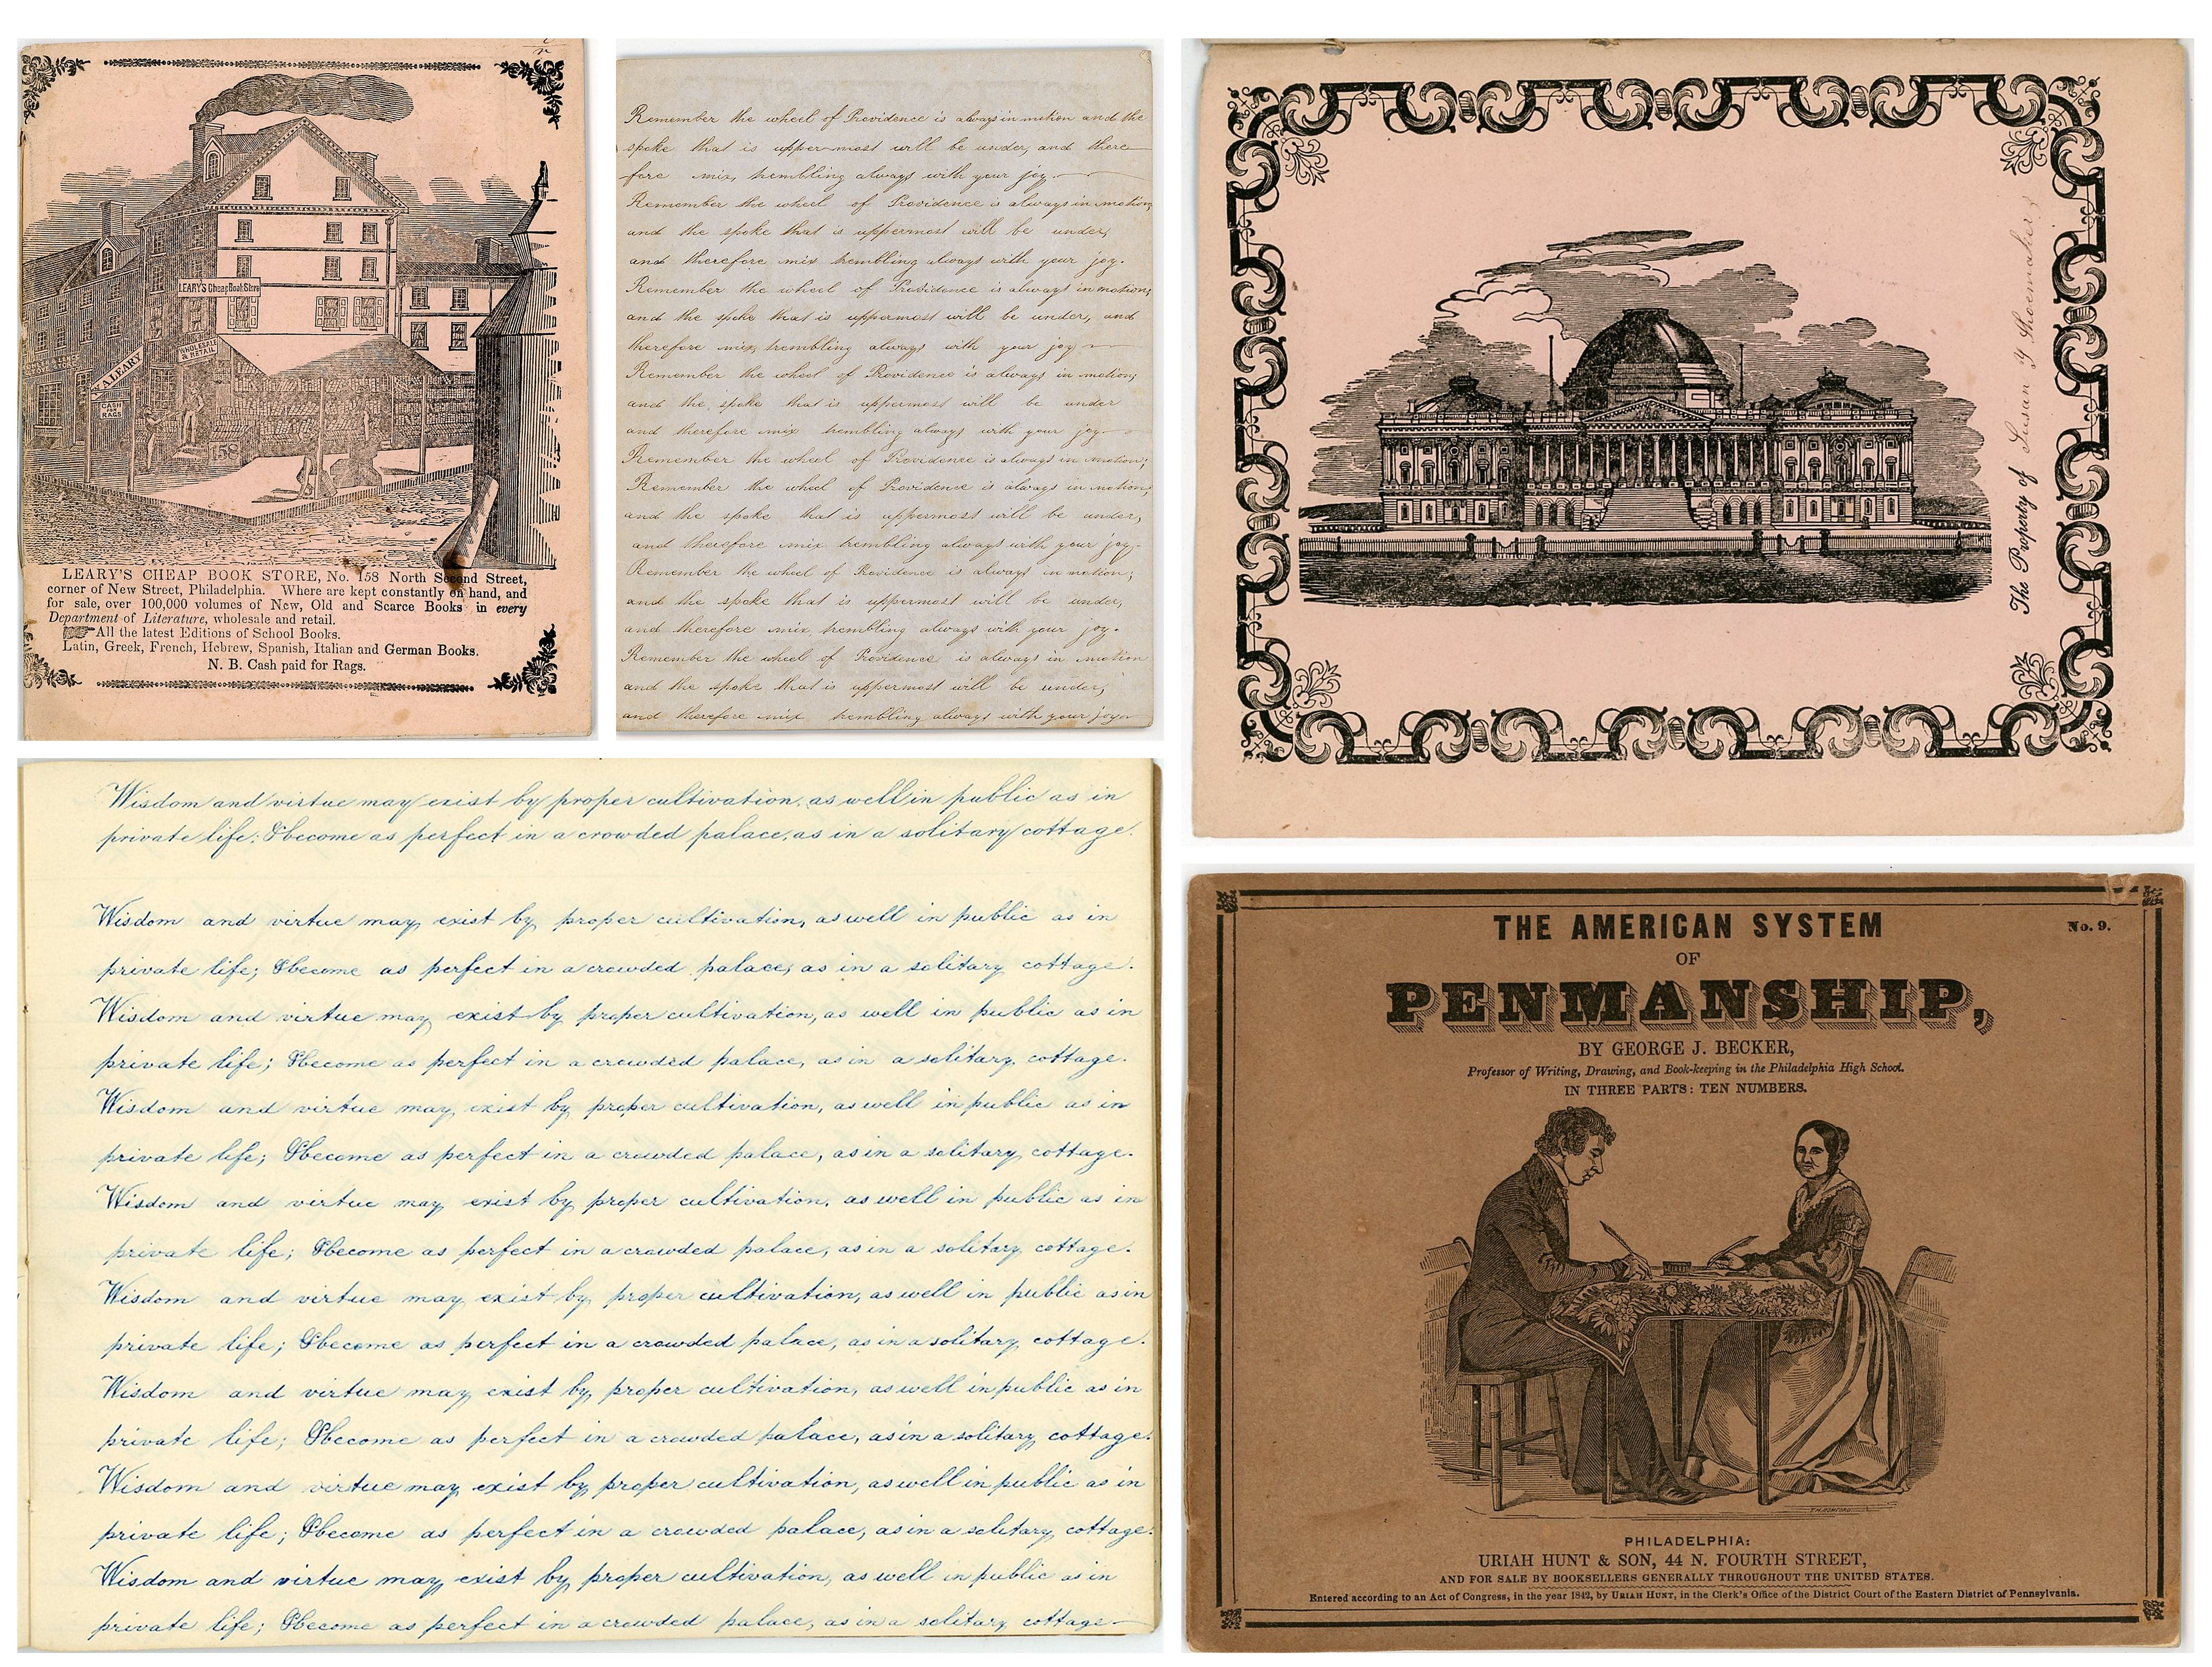 LEARY'S Cheap Book Store
WHOLESALE & RETAIL
W A LEARY
CASH
RAGS
158
LEARY'S CHEAP BOOK STORE, No. 158 North Second Street,
corner of New Street, Philadelphia. Where are kept constantly on hand, and
for sale, over 100,000 volumes of New, Old and Scarce Books in every
Department of Literature, wholesale and retail.
All the latest Editions of School Books.
Latin, Greek, French, Hebrew, Spanish, Italian and German Books.
N. B. Cash paid for Rags.
Remember the wheel of Providence is always in motion and the
spoke that is upper-most will be under, and there
fore mix trembling always with your joy.
Remember the wheel of Providence is always in motion,
and the spoke that is uppermost will be under,
and therefore mix trembling always with your joy.
Remember the wheel of Providence is always in motion,
and the spoke that is uppermost will be under, and
therefore mix trembling always with your joy
Remember the wheel of Providence is always in motion;
and the spoke that is uppermost will be under
and therefore mix trembling always with your joy
Remember the wheel of Providence is always in motion;
Remember the wheel of Providence is always in motion;
and the spoke that is uppermost will be under,
and therefore mix trembling always with your joy
Remember the wheel of Providence is always in motion;
and the spoke that is uppermost will be under,
and therefore mix trembling always with your joy.
Remember the wheel of Providence is always in motion
and the spoke that is uppermost will be under,
and therefore mix trembling always with your joy
The Property of Susan Y Shoemaker
Wisdom and virtue may exist by proper cultivation, as well in public as in
private life: & become as perfect in a crowded palace, as in a solitary cottage.
Wisdom and virtue may exist by proper cultivation, as well in public as in
private life; & become as perfect in a crowded palace, as in a solitary cottage.
Wisdom and virtue may exist by proper cultivation, as well in public as in
private life; & become as perfect in a crowded palace, as in a solitary cottage.
Wisdom and virtue may exist by proper cultivation, as well in public as in
private life; & become as perfect in a crowded palace, as in a solitary cottage.
Wisdom and virtue may exist by proper cultivation, as well in public as in
private life; & become as perfect in a crowded palace, as in a solitary cottage.
Wisdom and virtue may exist by proper cultivation, as well in public as in
private life; & become as perfect in a crowded palace, as in a solitary cottage.
Wisdom and virtue may exist by proper cultivation, as well in public as in
private life; & become as perfect in a crowded palace, as in a solitary cottage.
Wisdom and virtue may exist by proper cultivation, as well in public as in
private life; & become as perfect in a crowded palace, as in a solitary cottage.
Wisdom and virtue may exist by proper cultivation, as well in public as in
private life; & become as perfect in a crowded palace, as in a solitary cottage
No. 9.
THE AMERICAN SYSTEM
OF
PENMANSHIP,
BY GEORGE J. BECKER,
Professor of Writing, Drawing, and Book-keeping in the Philadelphia High School.
IN THREE PARTS: TEN NUMBERS.
PHILADELPHIA:
URIAH HUNT & SON, 44 N. FOURTH STREET,
AND FOR SALE BY BOOKSELLERS GENERALLY THROUGHOUT THE UNITED STATES.
Entered according to an Act of Congress, in the year 1842, by URIAH HUNT, in the Clerk's Office of the District Court of the Eastern District of Pennsylvania.